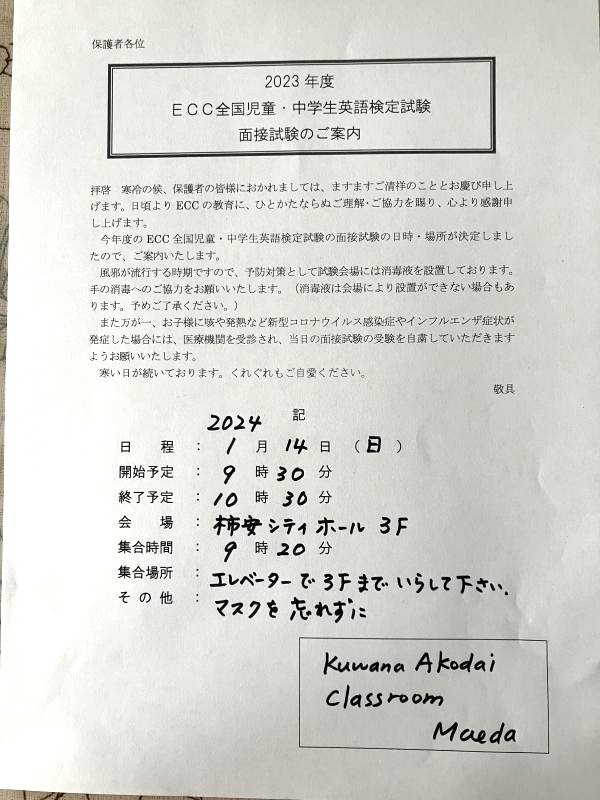 保護者各位
2023年度
ECC全国児童・中学生英語検定試験
面接試験のご案内
拝啓 寒冷の候、保護者の皆様におかれましては、ますますご清祥のこととお慶び申し上
げます。日頃より ECC の教育に、ひとかたならぬご理解・ご協力を賜り、心より感謝申
し上げます。
今年度の ECC 全国児童・中学生英語検定試験の面接試験の日時・場所が決定しまし
たので、ご案内いたします。
風邪が流行する時期ですので、予防対策として試験会場には消毒液を設置しております。
手の消毒へのご協力をお願いいたします。（消毒液は会場により設置ができない場合もあ
ります。予めご了承ください。）
また万が一、お子様に咳や発熱など新型コロナウイルス感染症やインフルエンザ症状が
発症した場合には、医療機関を受診され、当日の面接試験の受験を自粛していただきます
ようお願いいたします。
寒い日が続いております。くれぐれもご自愛ください。
敬具
記
2024
日 程 ： 1 月 14 日 （日）
開始予定 ： 9 時 30 分
終了予定 ： 10 時 30 分
会 場 ： 柿安シティホール 3F
集合時間 ： 9 時 20 分
集合場所 ： エレベーターで 3F まで いらして下さい.
その他 ： マスクを 忘れずに
Kuwana Akodai
Classroom
Maeda